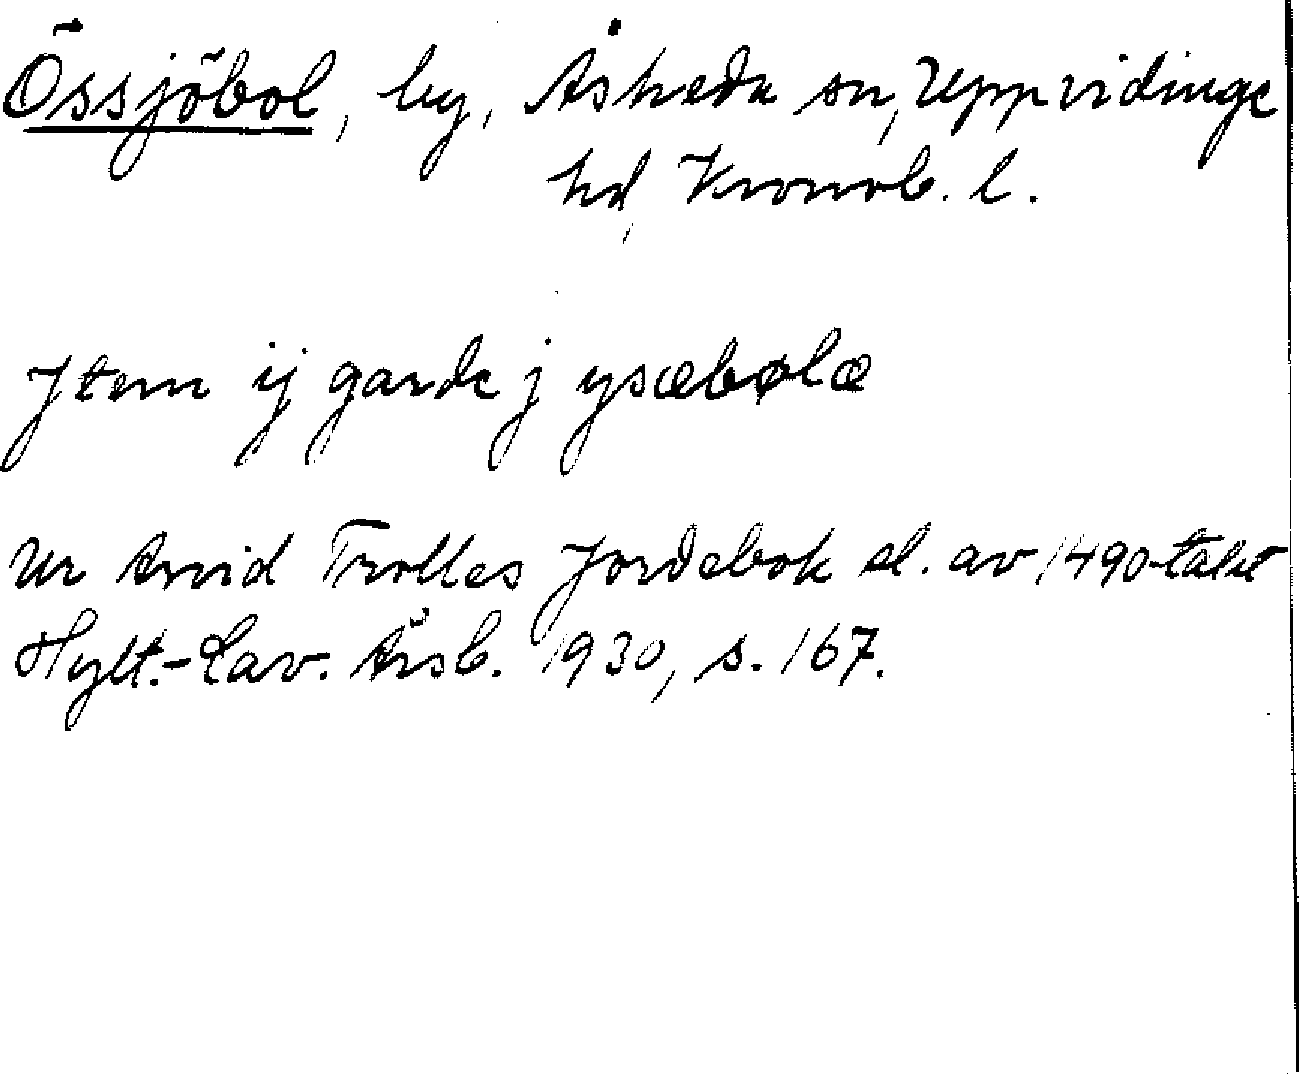 Össjöbol, by, Åsheda sn, Uppvidinge
hd, Kronob. l.
Jtem ij garde j ysæbølæ
Ur Arvid Trolles Jordebok sl. av 1490-talet
Hylt.-Cav. Årsb. 1930, s. 167.